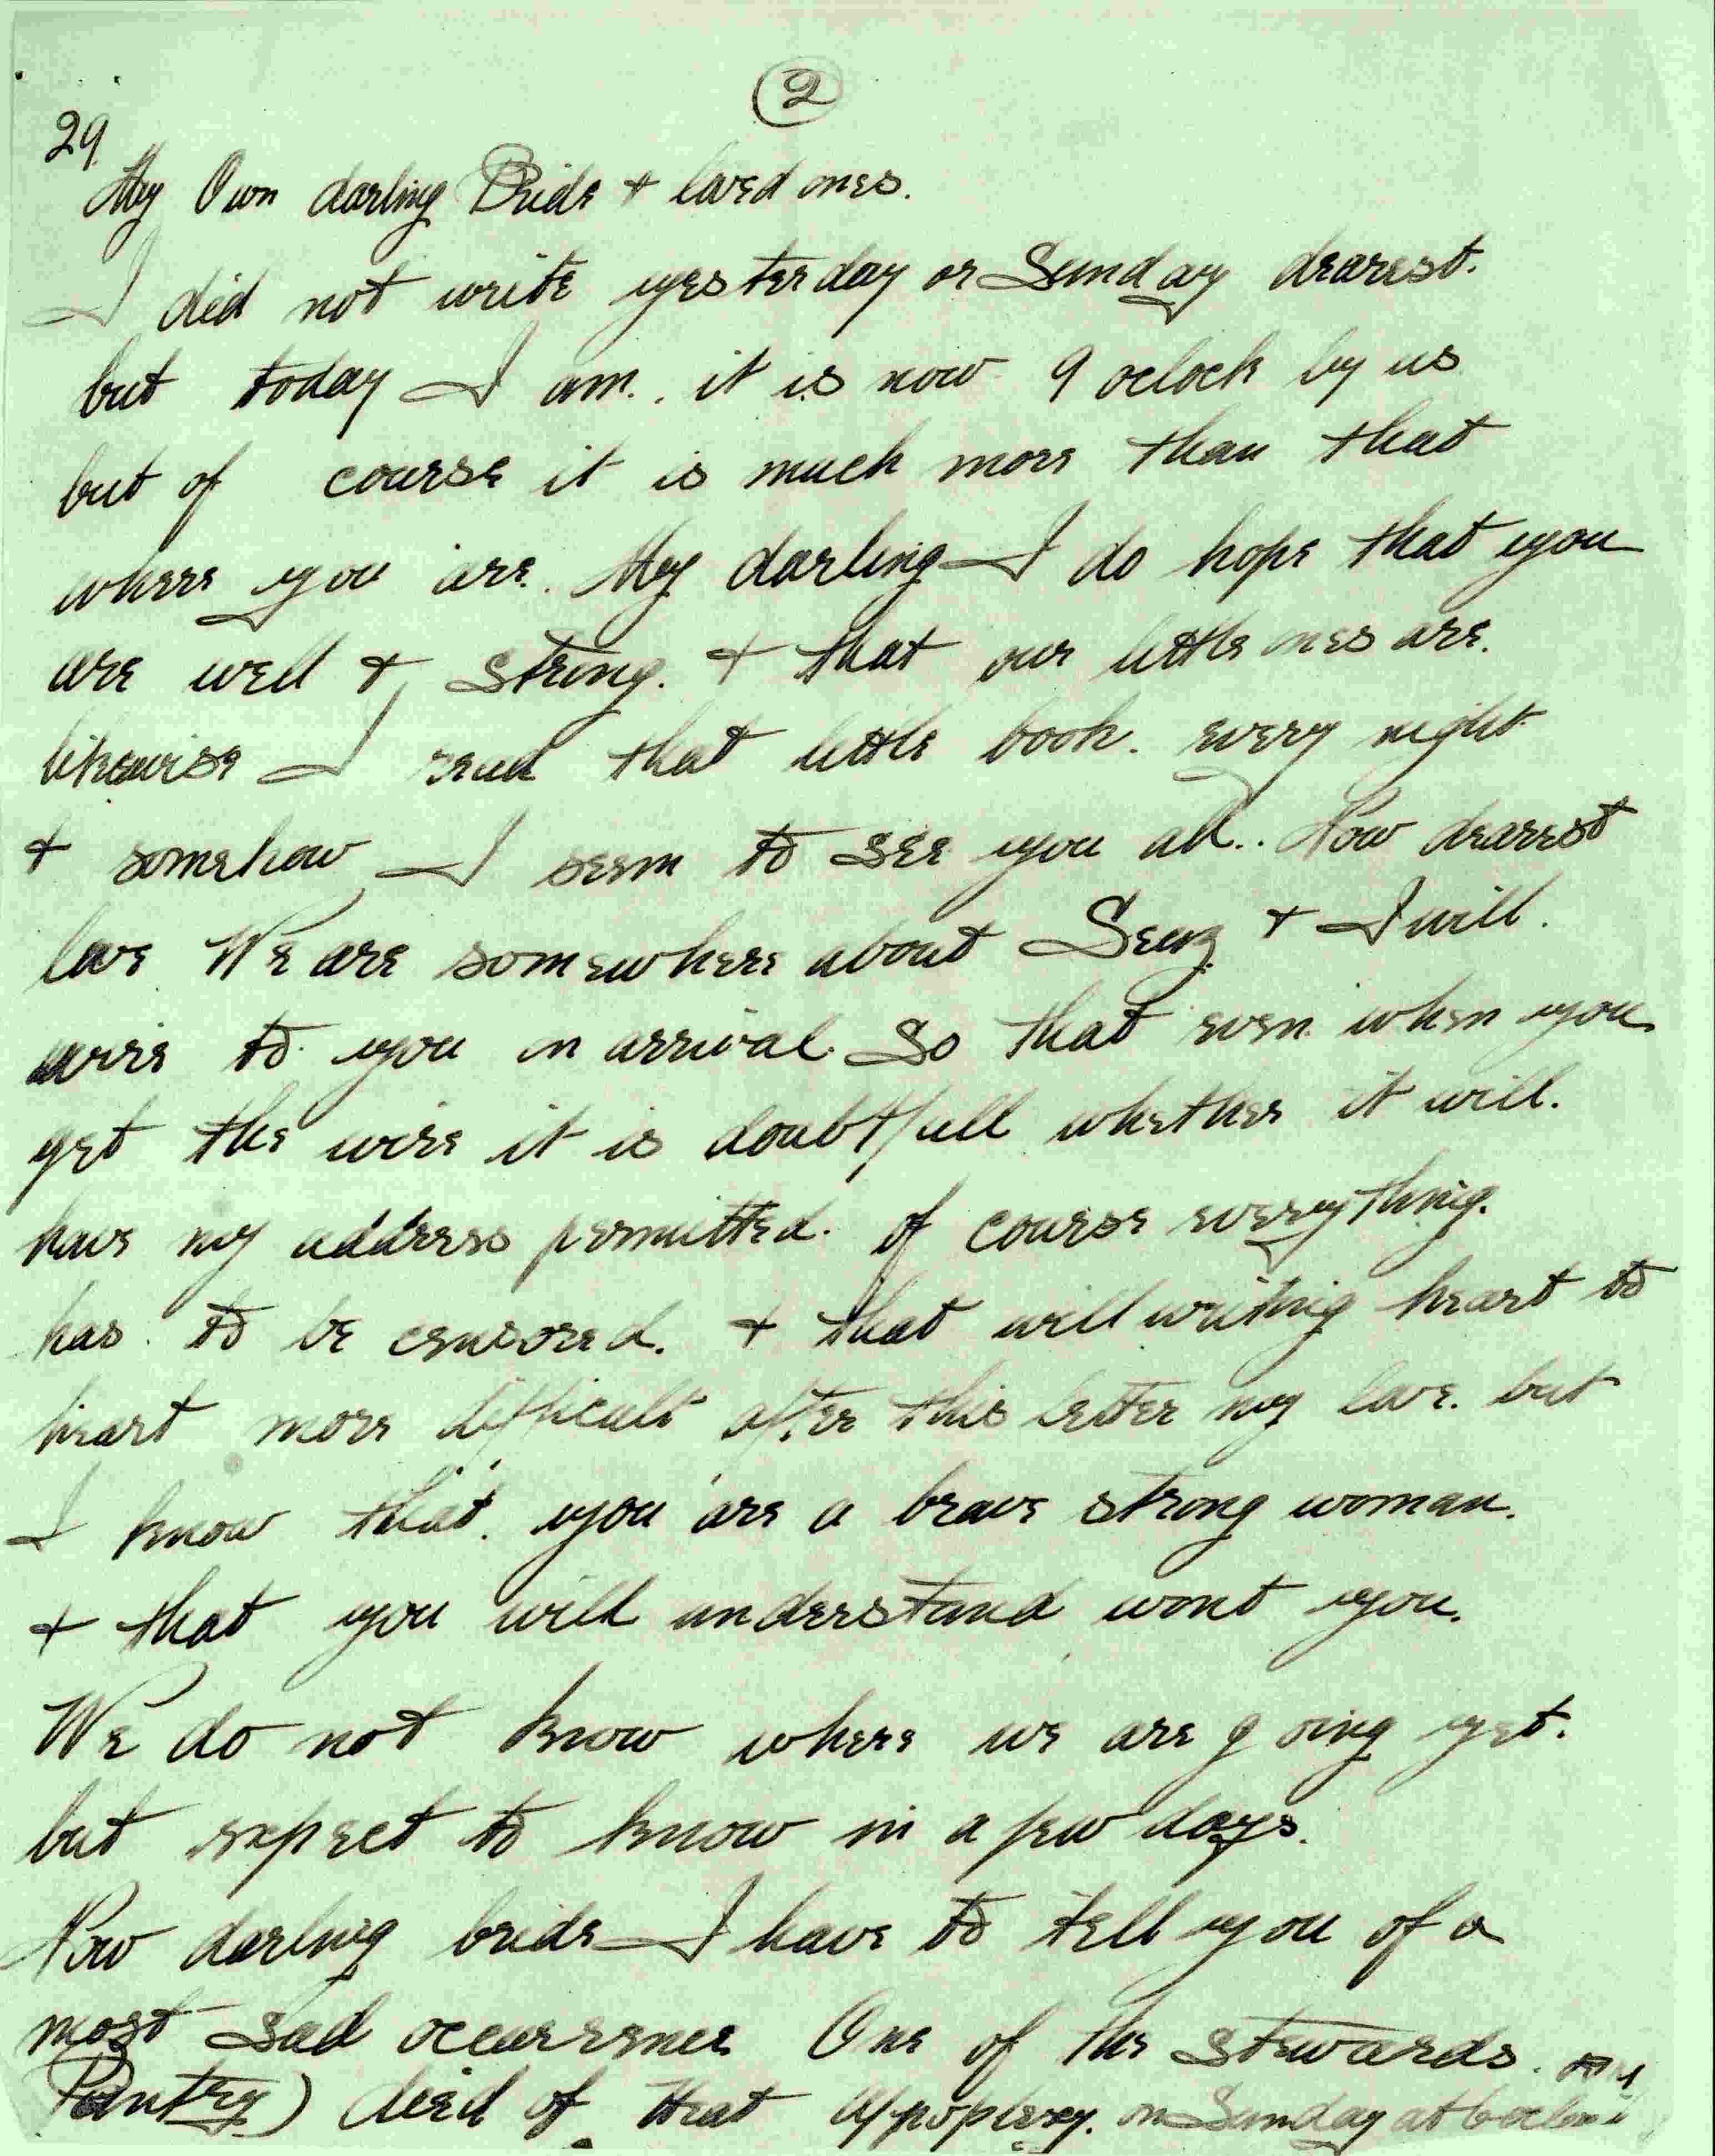 ②
29.
My Own darling Bride + loved ones.
I did not write yesterday or Sunday dearest.
but today I am.. it is now 9 oclock by us
but of course it is much more than that
where you are. My darling I do hope that you
are well + strong. + that our little ones are.
likewise I read that little book. every night
+ somehow I seem to see you all.. Now dearest
love We are somewhere about Suez + I will.
wire to you on arrival. So that even when you
get the wire it is doubtfull whether it will.
have my address permitted. of course everything.
has to be censored. + that will writing heart to
heart more difficult after this letter my love. but
I know that. you are a brave strong woman.
+ that you will understand wont you.
We do not know where we are going yet.
but expect to know in a few days.
Now darling bride I have to tell you of a
most sad occurrence One of the stewards.
Pantry) died of Heat Appoplexy. on Sunday at 6